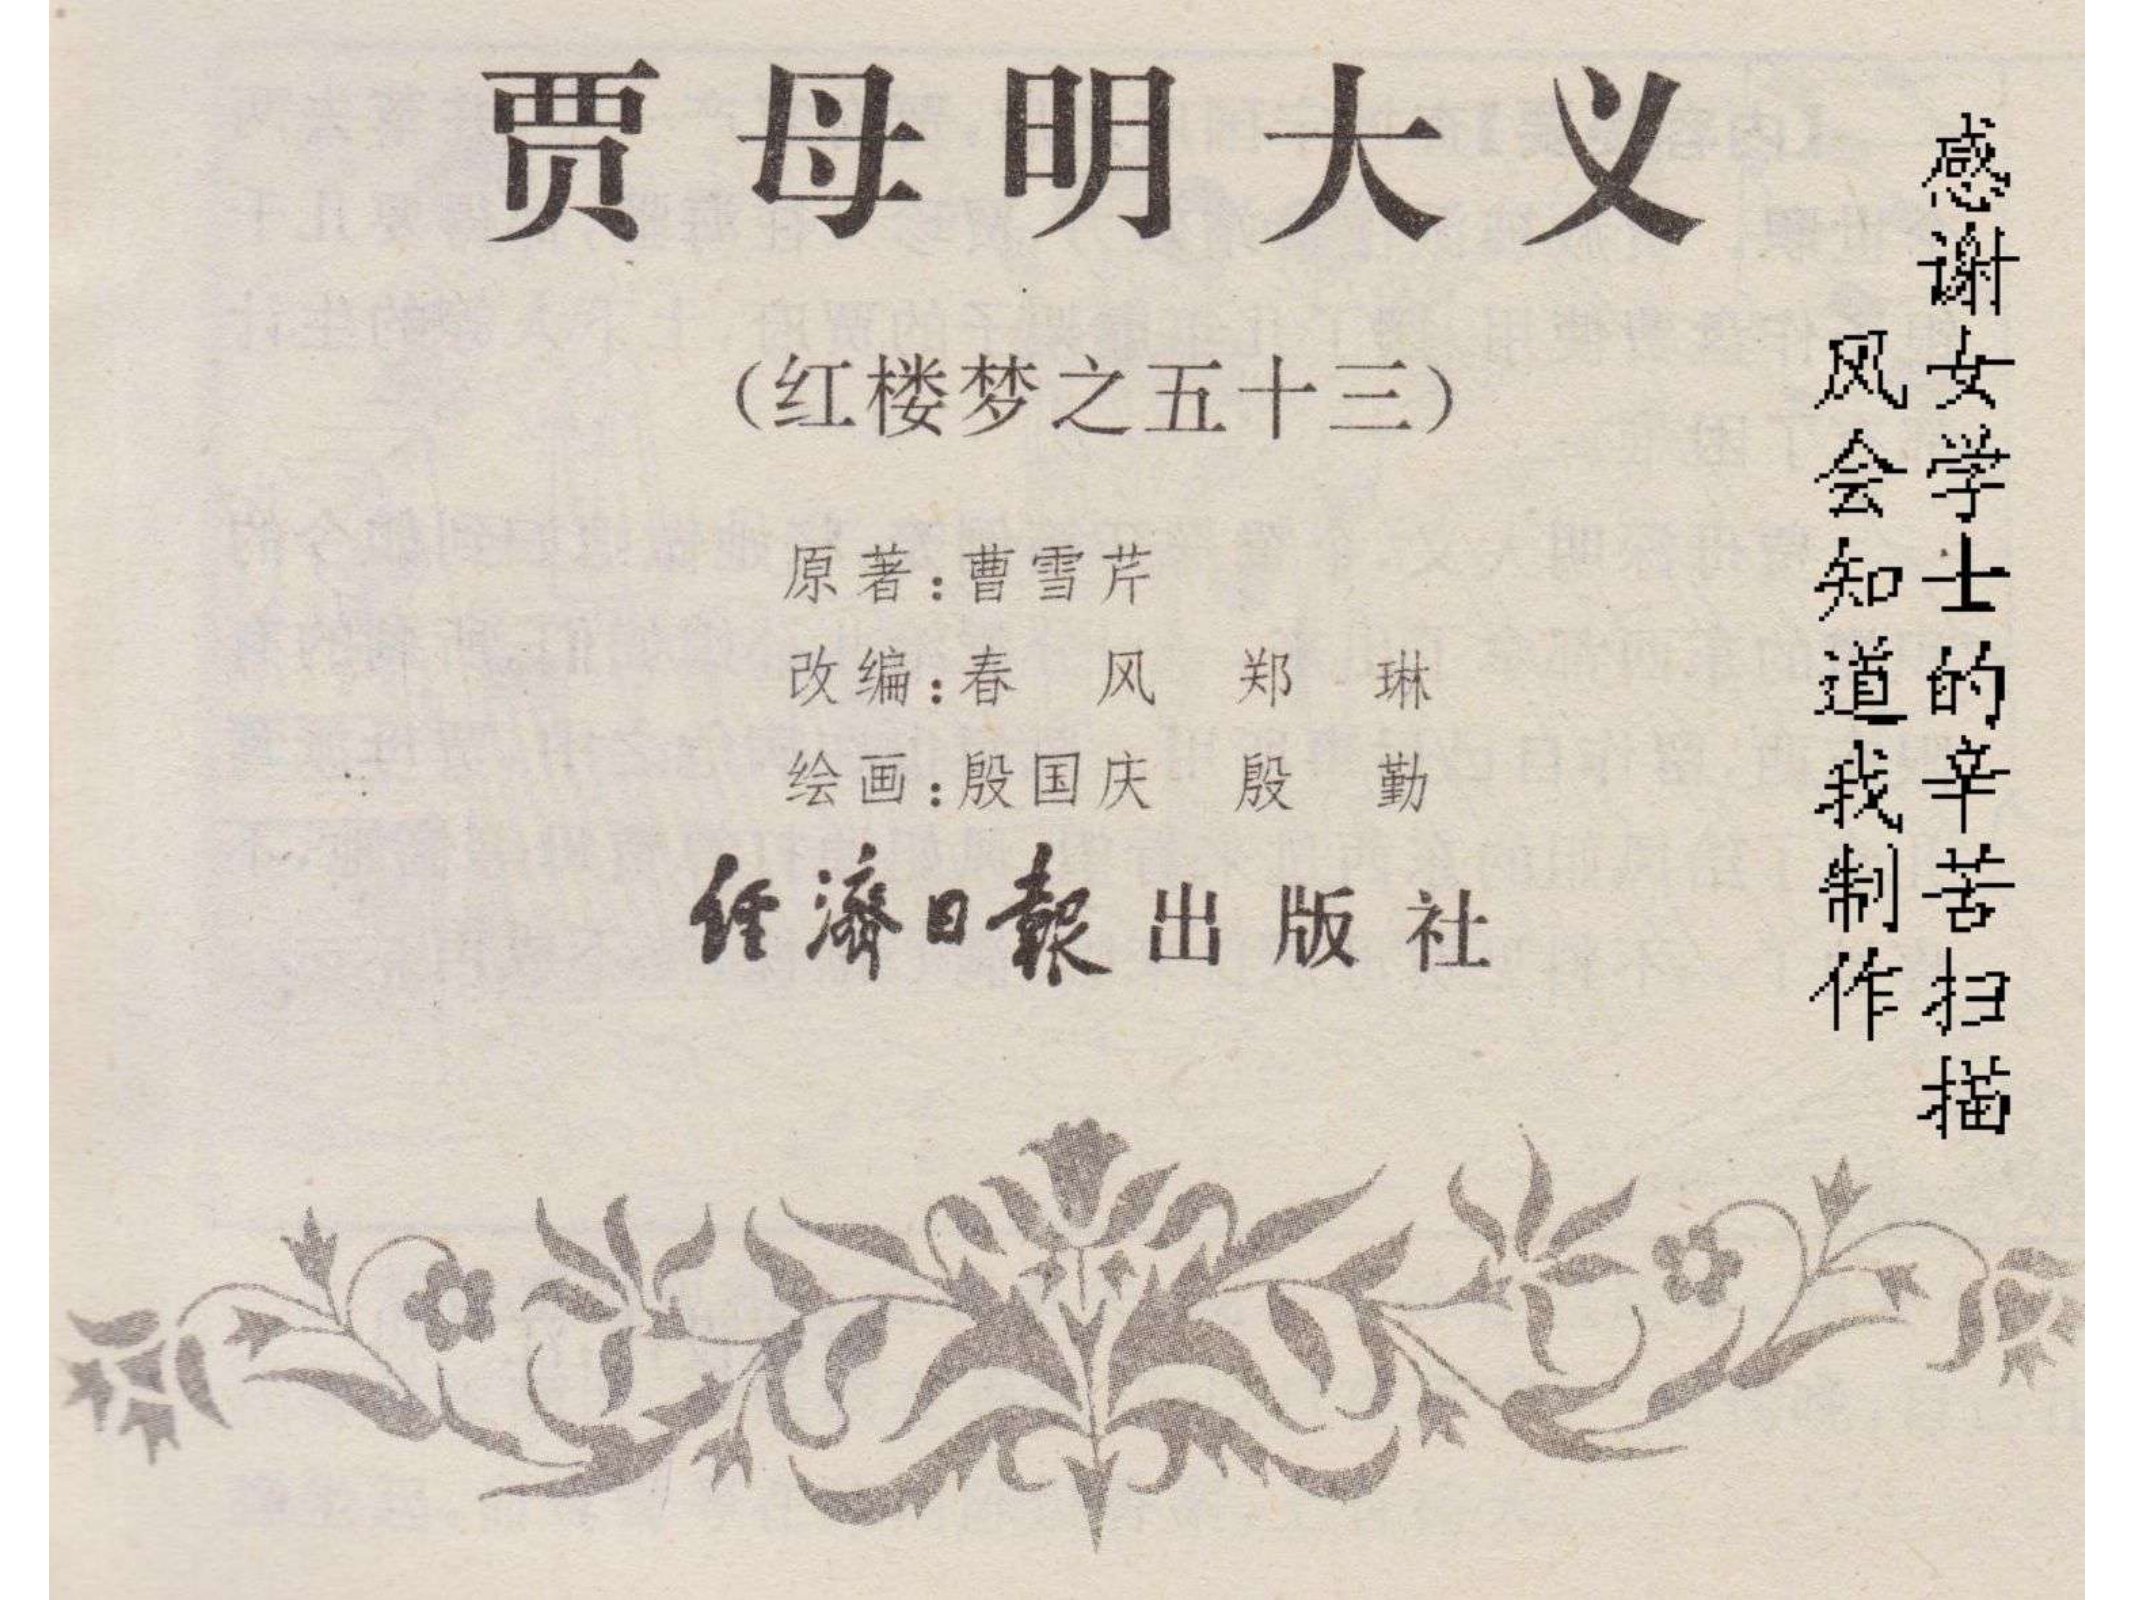 贾母明大义
（红楼梦之五十三）
原著：曹雪芹
改编：春 风 郑 琳
绘画：殷国庆 殷 勤
经濟日報出版社
感谢女学士的辛苦扫描
风会知道我制作